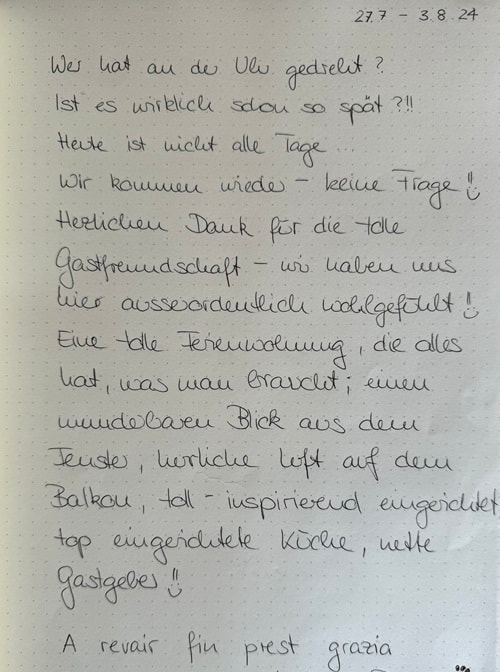 27.7 - 3.8.24
Wer hat an der Uhr gedreht?
Ist es wirklich schon so spät?!!
Heute ist nicht alle Tage...
Wir kommen wieder - keine Frage!!
Herzlichen Dank für die tolle
Gastfreundschaft - wir haben uns
hier ausserordentlich wohlgefühlt!
Eine tolle Ferienwohnung, die alles
hat, was man braucht; einen
wunderbaren Blick aus dem
Fenster, herrliche Luft auf dem
Balkon, toll - inspirierend eingerichtet
top eingerichtete Küche, nette
Gastgeber!!
A revair fin prest grazia